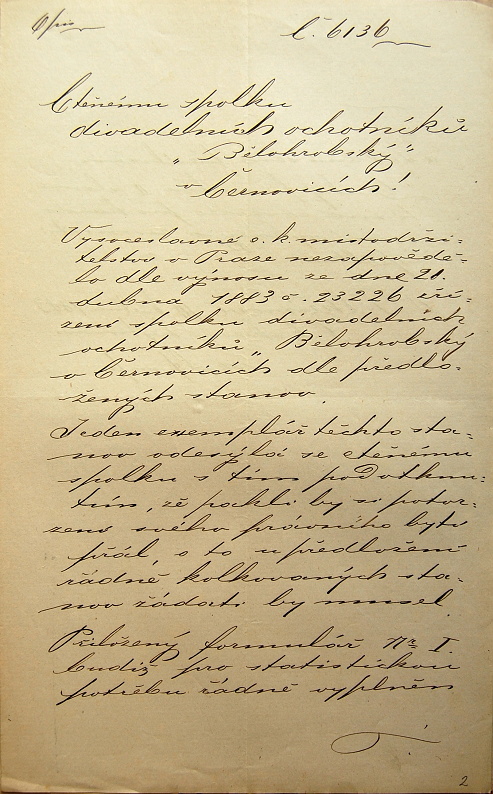 Č. 6136
Ctěnému spolku
divadelních ochotníků
„Bělohrobský“
v Černovicích!
Vysoceslavné c. k. místodrži-
telstvo v Praze nezapovědě-
lo dle výnosu ze dne 21.
dubna 1883 č. 23226 zří-
zení spolku divadelních
ochotníků „Bělohrobský
v Černovicích dle předlo-
žených stanov.
Jeden exemplář těchto sta-
nov odesýlá se ctěnému
spolku s tím podotknu-
tím, že pakli by si potvr-
zení svého právního bytu
přál, o to u předložení
řádně kolkovaných sta-
nov žádati by musel.
Přiložený formulář Nr I.
budiž pro statistickou
potřebu řádně vyplněn
2